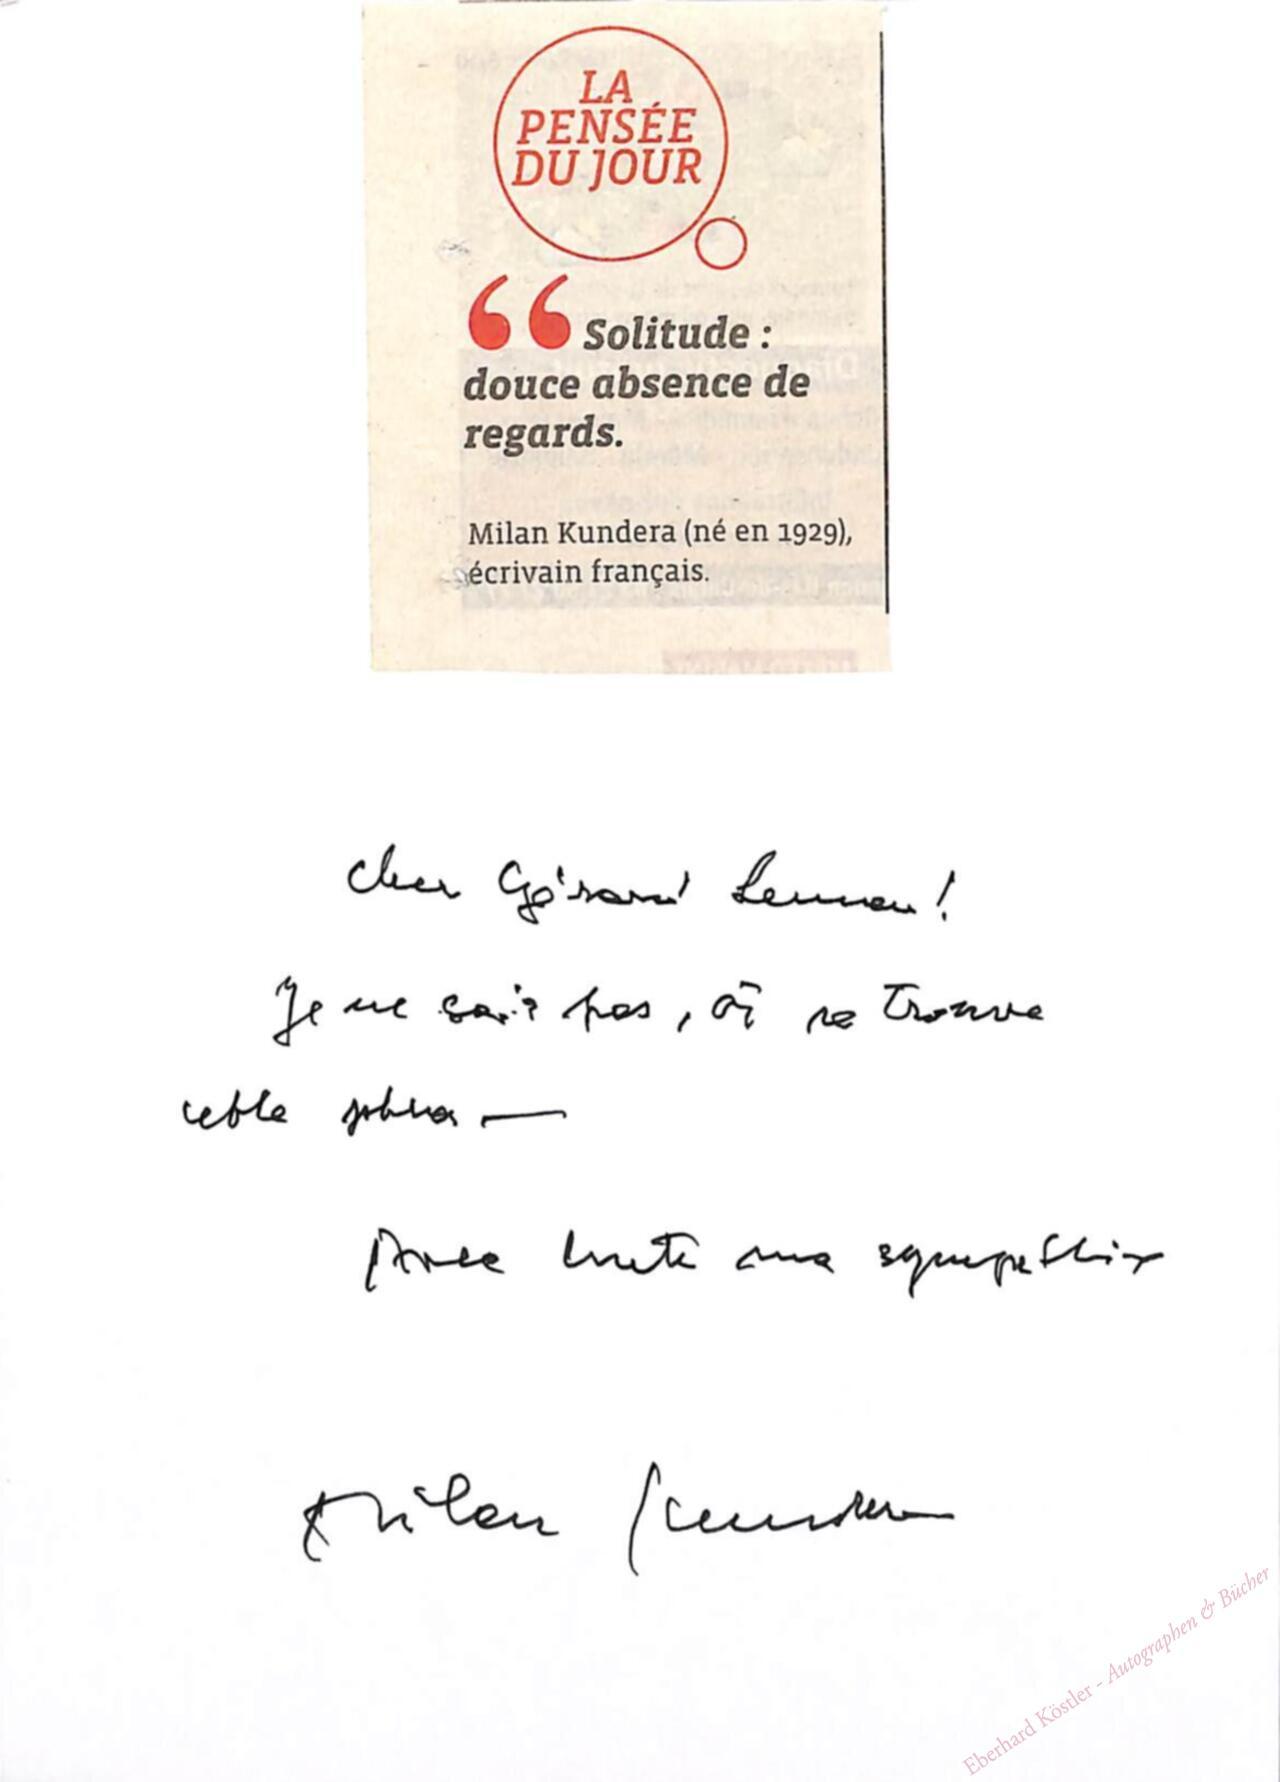 LA
PENSÉE
DU JOUR
“ Solitude :
douce absence de
regards.
Milan Kundera (né en 1929),
écrivain français.
Cher Gérard
Je ne sais pas, où se trouve
cette
Avec toute ma sympathie
Milan Kundera
Eberhard Köstler - Autographen & Bücher